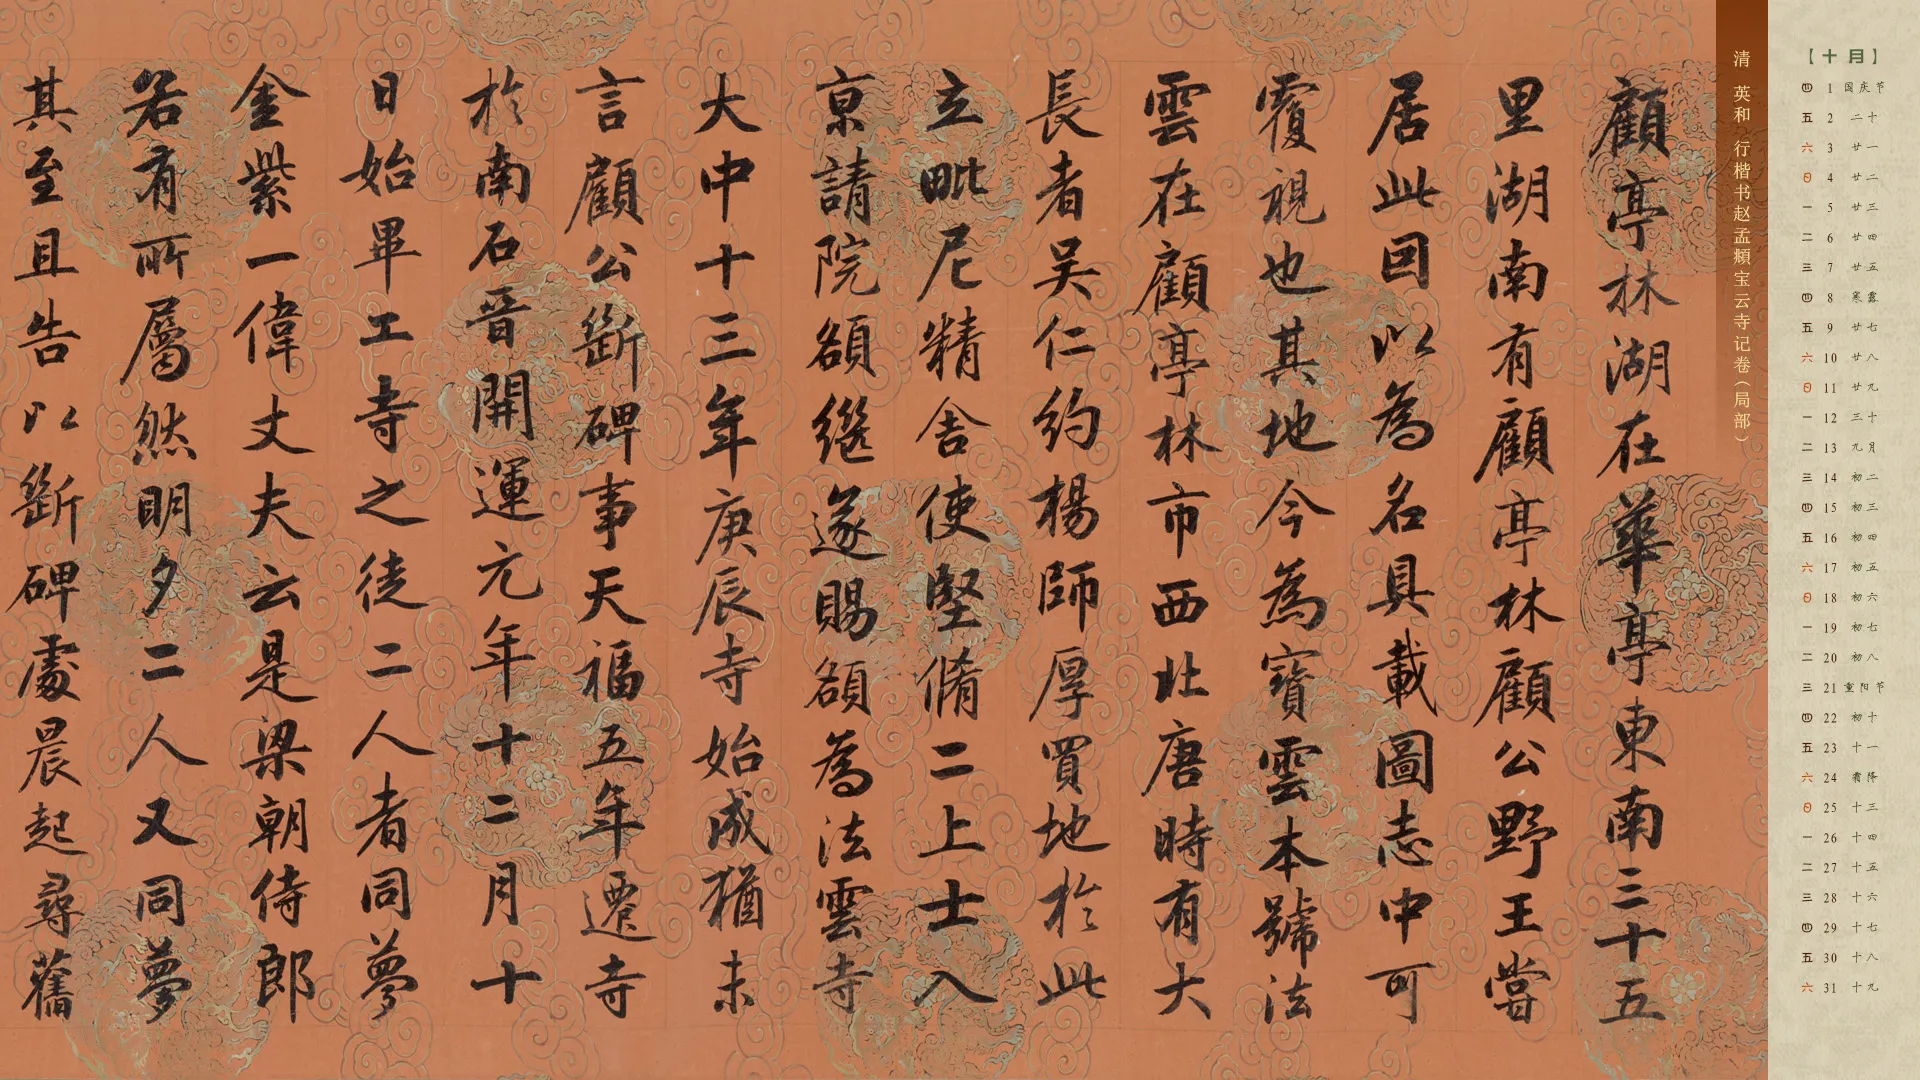 顧亭林湖在華亭東南三十五
里湖南有顧亭林顧公野王嘗
居此因以為名具載圖志中可
覆視也其地今為寶雲本號法
雲在顧亭林市西北唐時有大
長者吴仁約楊師厚買地於此
立毗尼精舍使堅脩二上士入
京請院額繼遂賜額為法雲寺
大中十三年庚辰寺始成猶未
言顧公斷碑事天福五年遷寺
於南石晉開運元年十二月十
日始畢工寺之徒二人者同夢
金紫一偉丈夫云是梁朝侍郎
若有所屬然明夕二人又同夢
其至且告以斷碑處晨起尋舊
清 英和 行楷书赵孟頫宝云寺记卷（局部）
【十月】
四 1 国庆节
五 2 二十
六 3 廿一
日 4 廿二
一 5 廿三
二 6 廿四
三 7 廿五
四 8 寒露
五 9 廿七
六 10 廿八
日 11 廿九
一 12 三十
二 13 九月
三 14 初二
四 15 初三
五 16 初四
六 17 初五
日 18 初六
一 19 初七
二 20 初八
三 21 重阳节
四 22 初十
五 23 十一
六 24 霜降
日 25 十三
一 26 十四
二 27 十五
三 28 十六
四 29 十七
五 30 十八
六 31 十九